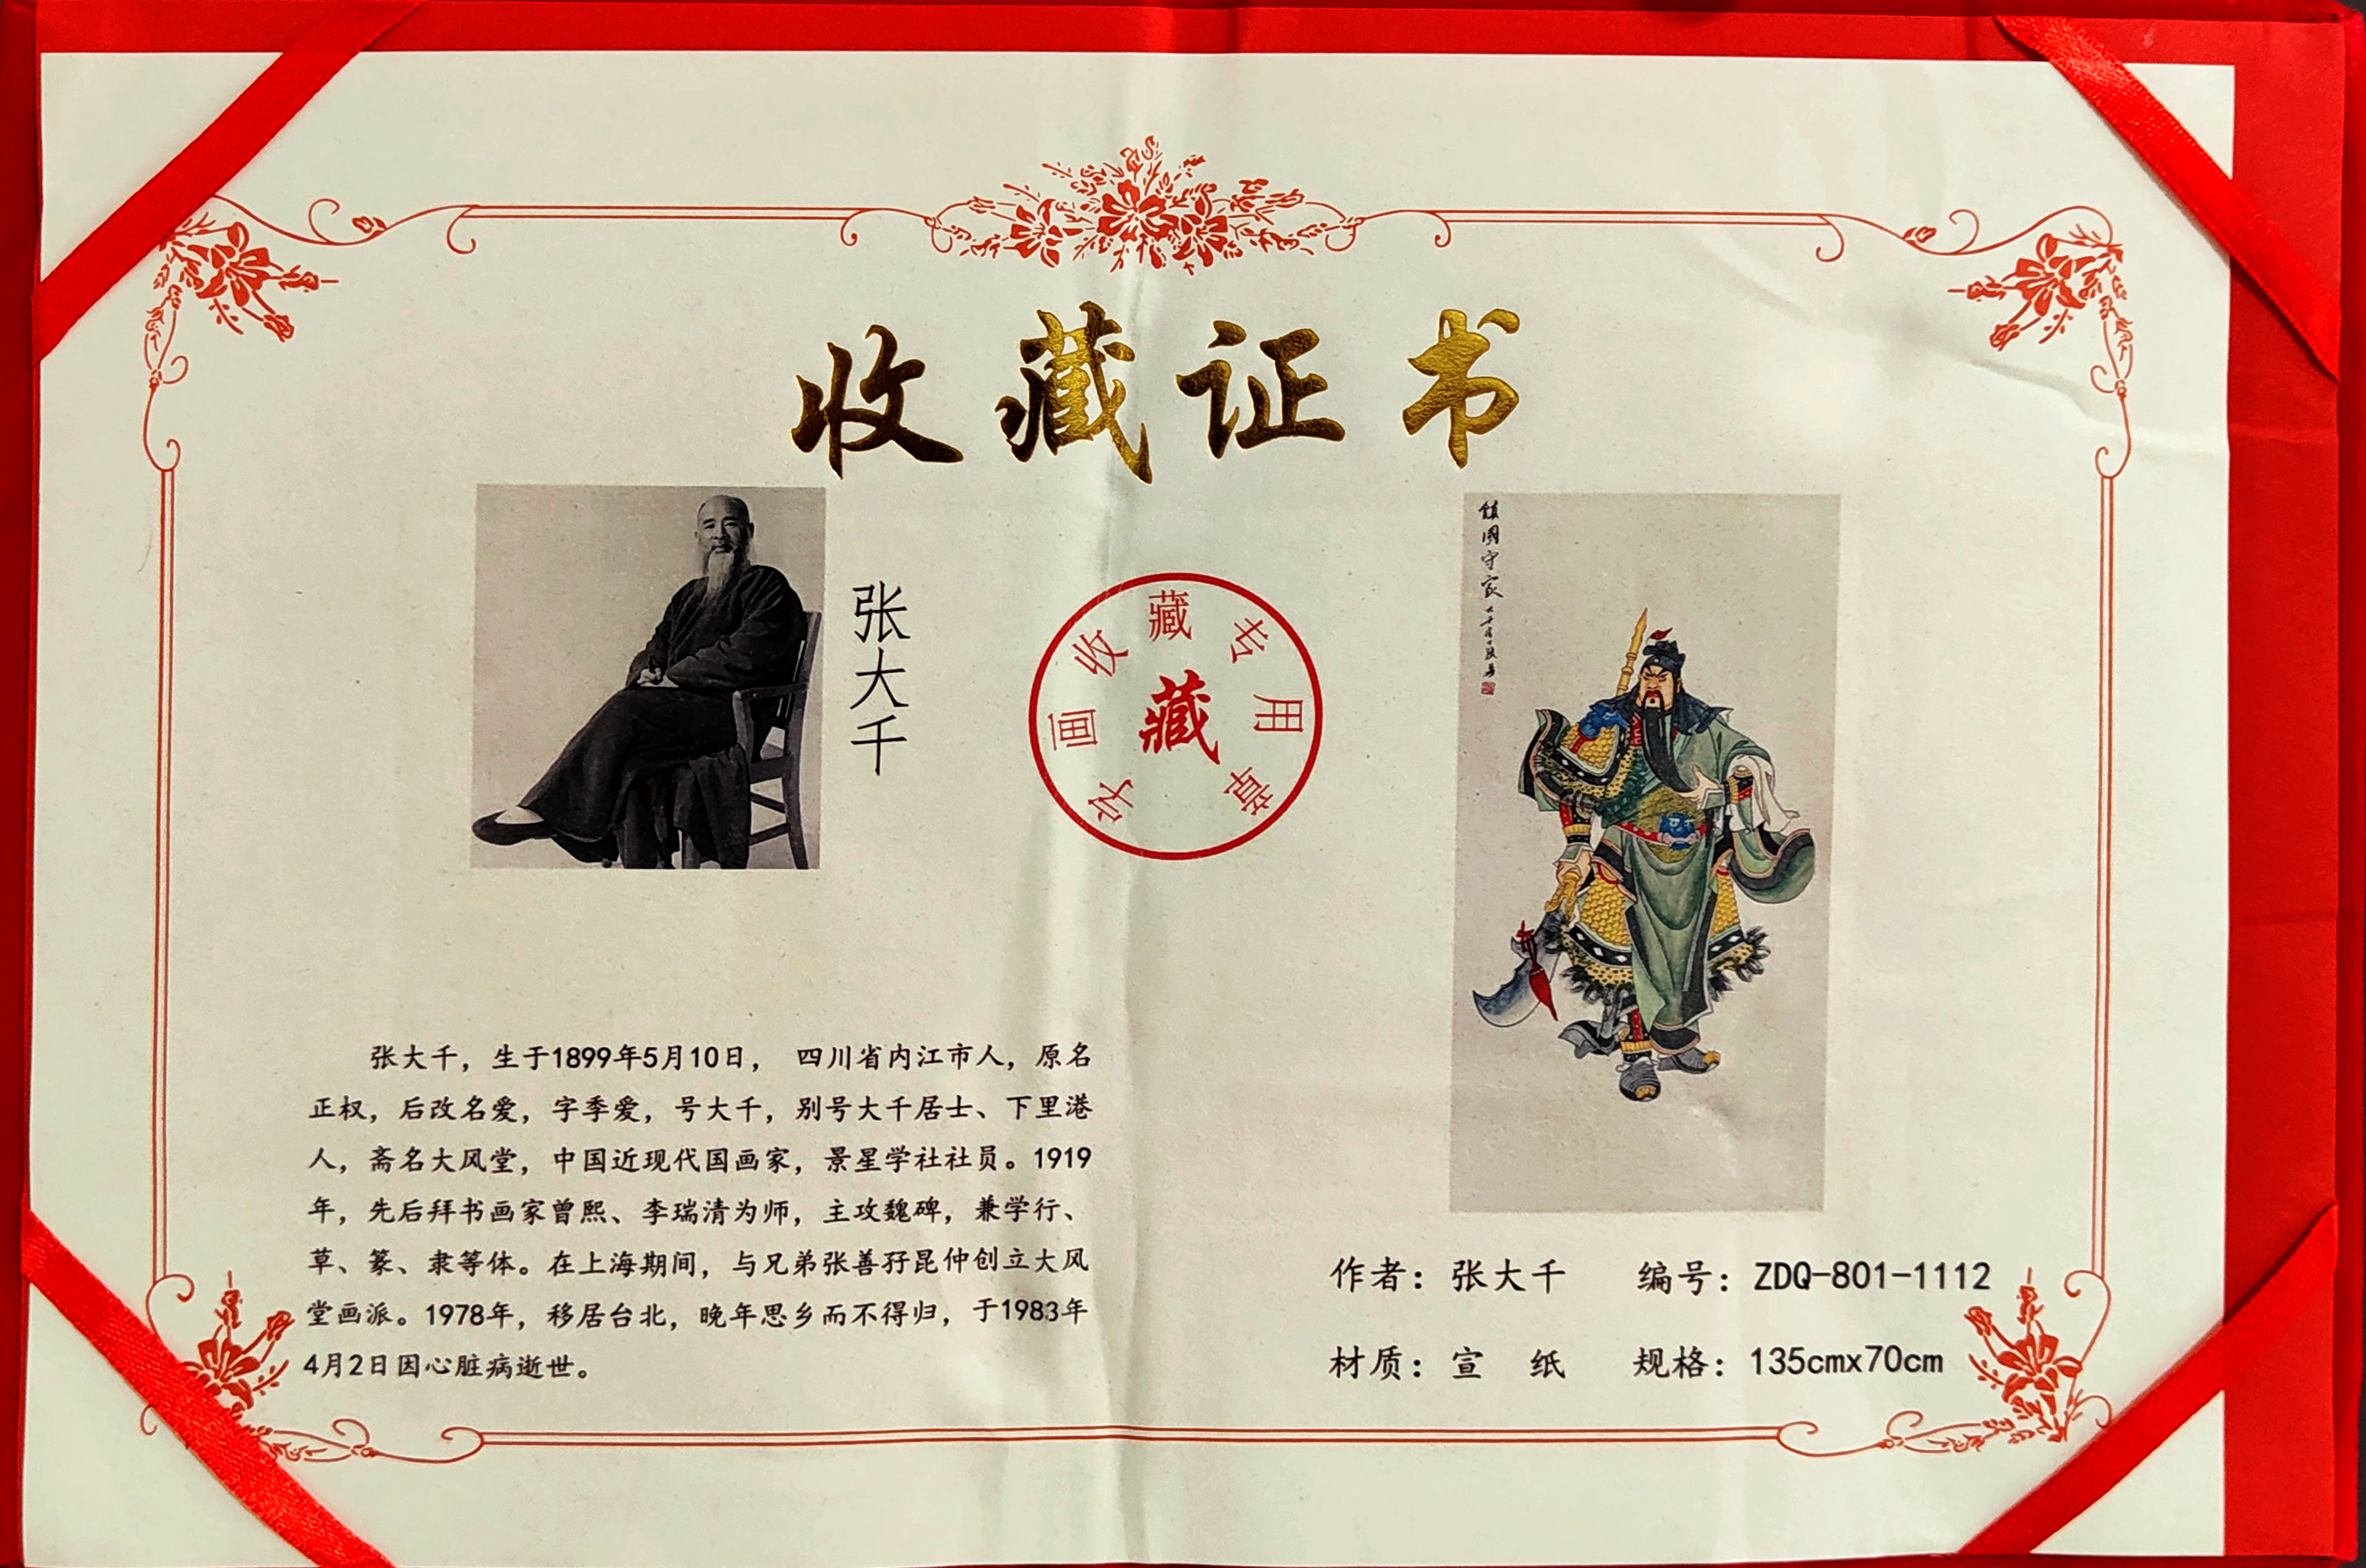 收藏证书
张大千
字画收藏专用章
藏
鎮國守家
张大千，生于1899年5月10日， 四川省内江市人，原名
正权，后改名爱，字季爱，号大千，别号大千居士、下里港
人，斋名大风堂，中国近现代国画家，景星学社社员。1919
年，先后拜书画家曾熙、李瑞清为师，主攻魏碑，兼学行、
草、篆、隶等体。在上海期间，与兄弟张善孖昆仲创立大风
堂画派。1978年，移居台北，晚年思乡而不得归，于1983年
4月2日因心脏病逝世。
作者：张大千 编号：ZDQ-801-1112
材质：宣 纸 规格：135cmx70cm